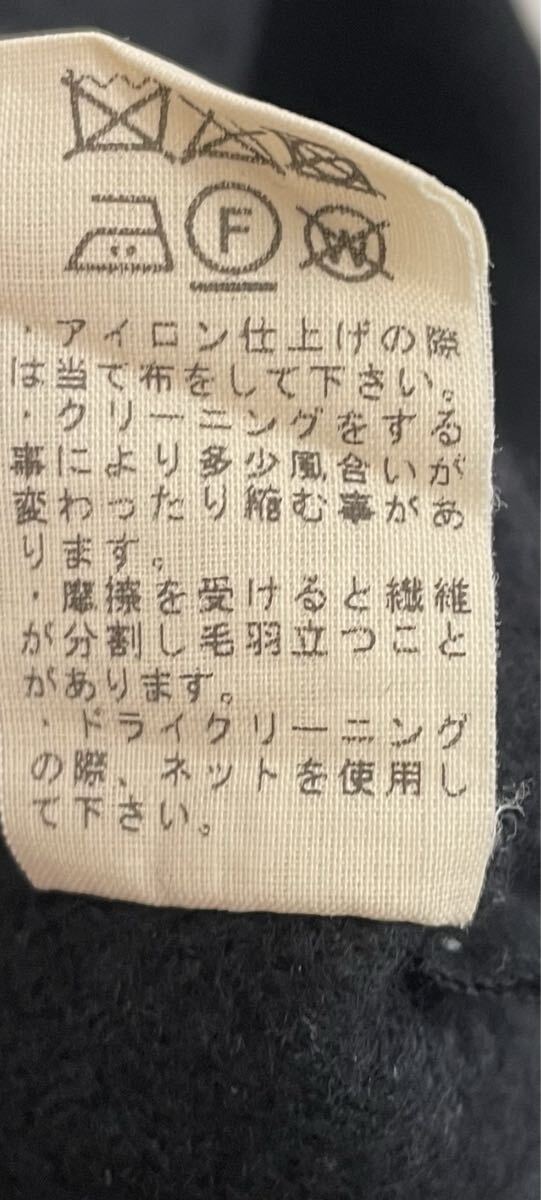 F W
・アイロン仕上げの際
は当て布をして下さい。
・クリーニングをする
事により多少風合いが
変わったり縮む事があ
ります。
・摩擦を受けると繊維
が分割し毛羽立つこと
があります。
・ドライクリーニング
の際、ネットを使用し
て下さい。